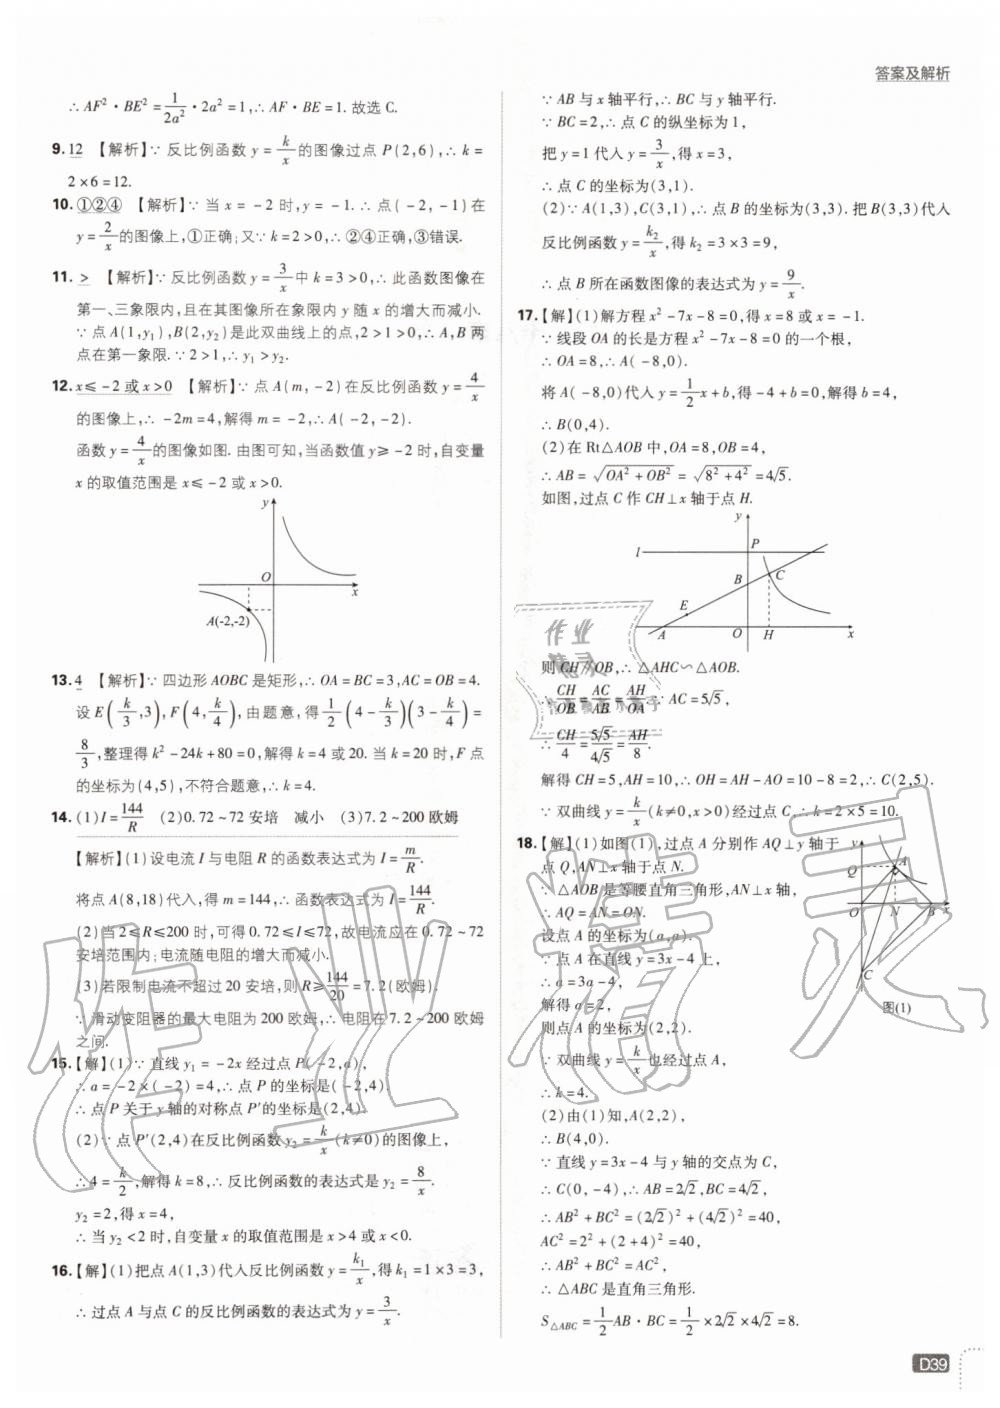 答案及解析
∴ AF²·BE² = 1/2a² · 2a² = 1,∴ AF·BE = 1. 故选 C.
9. 12 【解析】∵ 反比例函数 y = k/x 的图像过点 P(2,6),∴ k =
2×6 = 12.
10. ①②④ 【解析】∵ 当 x = -2 时, y = -1. ∴ 点(-2,-1)在
y = 2/x 的图像上,①正确;又∵ k = 2 > 0,∴ ②④正确,③错误.
11. > 【解析】∵ 反比例函数 y = 3/x 中 k = 3 > 0,∴ 此函数图像在
第一、三象限内,且在其图像所在象限内 y 随 x 的增大而减小.
∵ 点 A(1,y₁),B(2,y₂)是此双曲线上的点,2>1>0,∴ A,B 两
点在第一象限. ∵ 2>1,∴ y₁>y₂.
12. x≤-2 或 x>0 【解析】∵ 点 A(m,-2)在反比例函数 y = 4/x
的图像上,∴ -2m = 4,解得 m = -2,∴ A(-2,-2).
函数 y = 4/x 的图像如图. 由图可知,当函数值 y≥-2 时,自变量
x 的取值范围是 x≤-2 或 x>0.
y
O
x
A(-2,-2)
13. 4 【解析】∵ 四边形 AOBC 是矩形,∴ OA = BC = 3,AC = OB = 4.
设 E(k/3,3),F(4,k/4),由题意,得 1/2(4 - k/3)(3 - k/4) =
8/3,整理得 k² - 24k + 80 = 0,解得 k = 4 或 20. 当 k = 20 时,F 点
的坐标为(4,5),不符合题意,∴ k = 4.
14. (1)I = 144/R (2)0.72~72 安培 减小 (3)7.2~200 欧姆
【解析】(1)设电流 I 与电阻 R 的函数表达式为 I = m/R.
将点 A(8,18)代入,得 m = 144,∴ 函数表达式为 I = 144/R.
(2)当 2≤R≤200 时,可得 0.72≤I≤72,故电流应在 0.72~72
安培范围内;电流随电阻的增大而减小.
(3)若限制电流不超过 20 安培,则 R≥144/20 = 7.2(欧姆).
∵ 滑动变阻器的最大电阻为 200 欧姆,∴ 电阻在 7.2~200 欧姆
之间.
15. 【解】(1)∵ 直线 y₁ = -2x 经过点 P(-2,a),
∴ a = -2×(-2) = 4,∴ 点 P 的坐标是(-2,4).
∴ 点 P 关于 y 轴的对称点 P′的坐标是(2,4).
(2)∵ 点 P′(2,4)在反比例函数 y₂ = k/x (k≠0)的图像上,
∴ 4 = k/2,解得 k = 8,∴ 反比例函数的表达式是 y₂ = 8/x.
y₂ = 2,得 x = 4,
∴ 当 y₂<2 时,自变量 x 的取值范围是 x>4 或 x<0.
16. 【解】(1)把点 A(1,3)代入反比例函数 y = k₁/x,得 k₁ = 1×3 = 3,
∴ 过点 A 与点 C 的反比例函数的表达式为 y = 3/x.
∵ AB 与 x 轴平行,∴ BC 与 y 轴平行.
∵ BC = 2,∴ 点 C 的纵坐标为 1,
把 y = 1 代入 y = 3/x,得 x = 3,
∴ 点 C 的坐标为(3,1).
(2)∵ A(1,3),C(3,1),∴ 点 B 的坐标为(3,3). 把 B(3,3)代入
反比例函数 y = k₂/x,得 k₂ = 3×3 = 9,
∴ 点 B 所在函数图像的表达式为 y = 9/x.
17. 【解】(1)解方程 x² - 7x - 8 = 0,得 x = 8 或 x = -1.
∵ 线段 OA 的长是方程 x² - 7x - 8 = 0 的一个根,
∴ OA = 8,∴ A(-8,0).
将 A(-8,0)代入 y = 1/2x + b,得 -4 + b = 0,解得 b = 4,
∴ B(0,4).
(2)在 Rt△AOB 中,OA = 8,OB = 4,
∴ AB = √(OA² + OB²) = √(8² + 4²) = 4√5.
如图,过点 C 作 CH⊥x 轴于点 H.
y
l
P
B
C
E
A
O
H
x
则 CH∥OB,∴ △AHC∽△AOB.
∴ CH/OB = AC/AB = AH/OA. ∵ AC = 5√5,
∴ CH/4 = 5√5/4√5 = AH/8.
解得 CH = 5,AH = 10,∴ OH = AH - AO = 10 - 8 = 2,∴ C(2,5).
∵ 双曲线 y = k/x (k≠0,x>0)经过点 C,∴ k = 2×5 = 10.
18. 【解】(1)如图(1),过点 A 分别作 AQ⊥y 轴于
点 Q,AN⊥x 轴于点 N.
∵ △AOB 是等腰直角三角形,AN⊥x 轴,
∴ AQ = AN = ON.
设点 A 的坐标为(a,a).
∵ 点 A 在直线 y = 3x - 4 上,
∴ a = 3a - 4,
解得 a = 2,
则点 A 的坐标为(2,2).
∵ 双曲线 y = k/x 也经过点 A,
∴ k = 4.
y
Q
A
O
N
B
x
C
图(1)
(2)由(1)知,A(2,2),
∴ B(4,0).
∵ 直线 y = 3x - 4 与 y 轴的交点为 C,
∴ C(0,-4),∴ AB = 2√2,BC = 4√2,
∴ AB² + BC² = (2√2)² + (4√2)² = 40,
AC² = 2² + (2+4)² = 40,
∴ AB² + BC² = AC²,
∴ △ABC 是直角三角形.
S△ABC = 1/2 AB·BC = 1/2 ×2√2×4√2 = 8.
D39
作业精灵